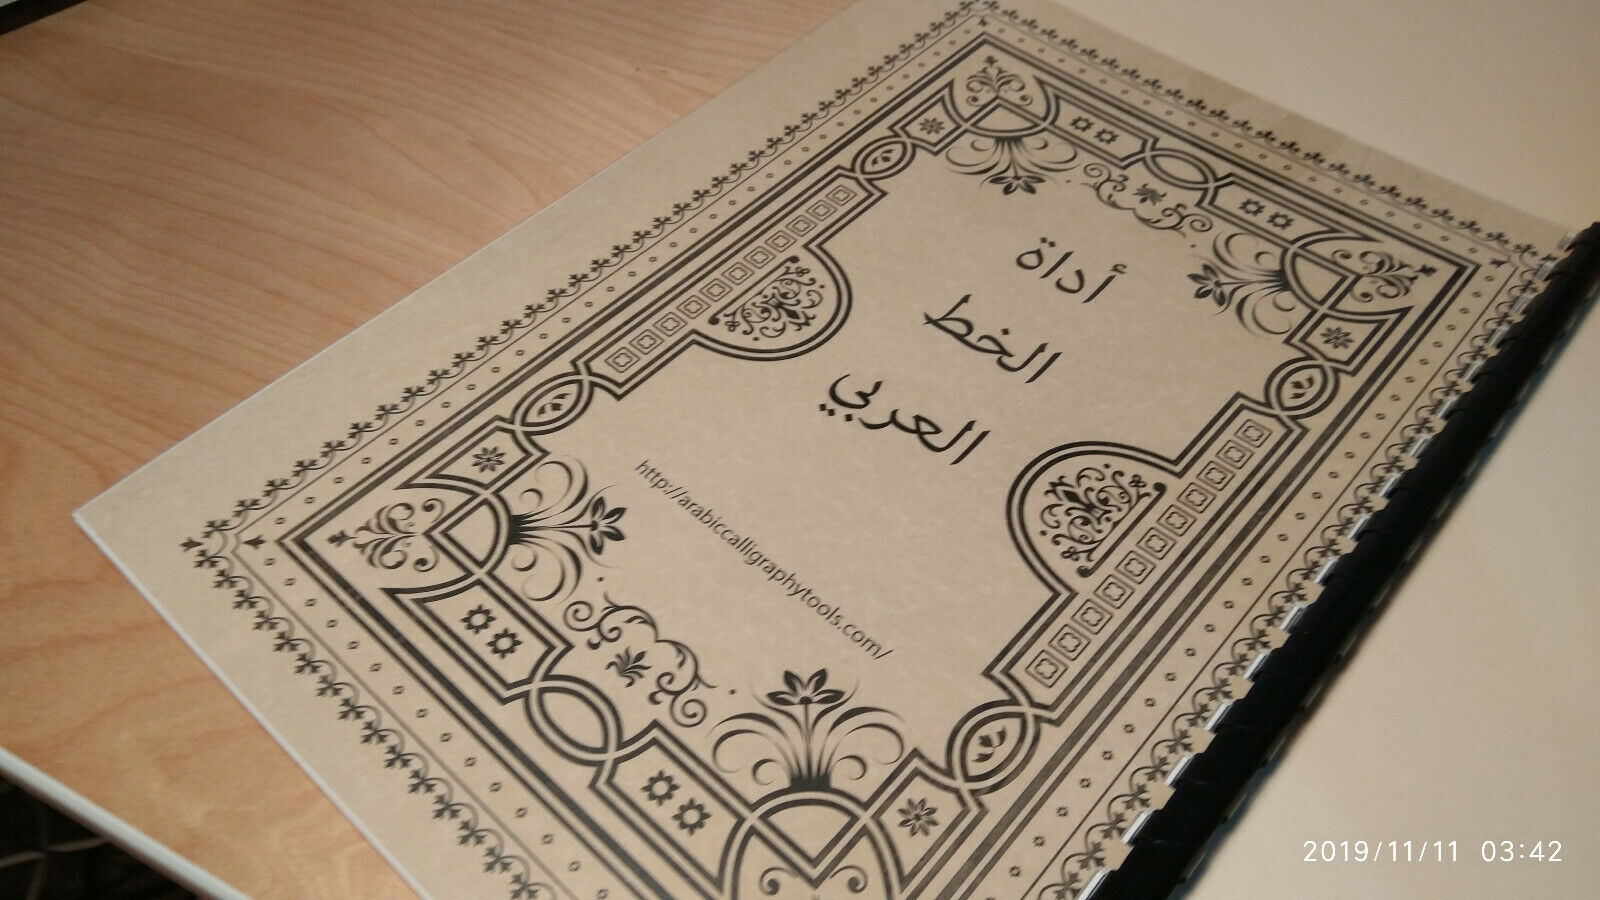 أداة
الخط
العربي
http://arabiccalligraphytools.com/
2019/11/11 03:42